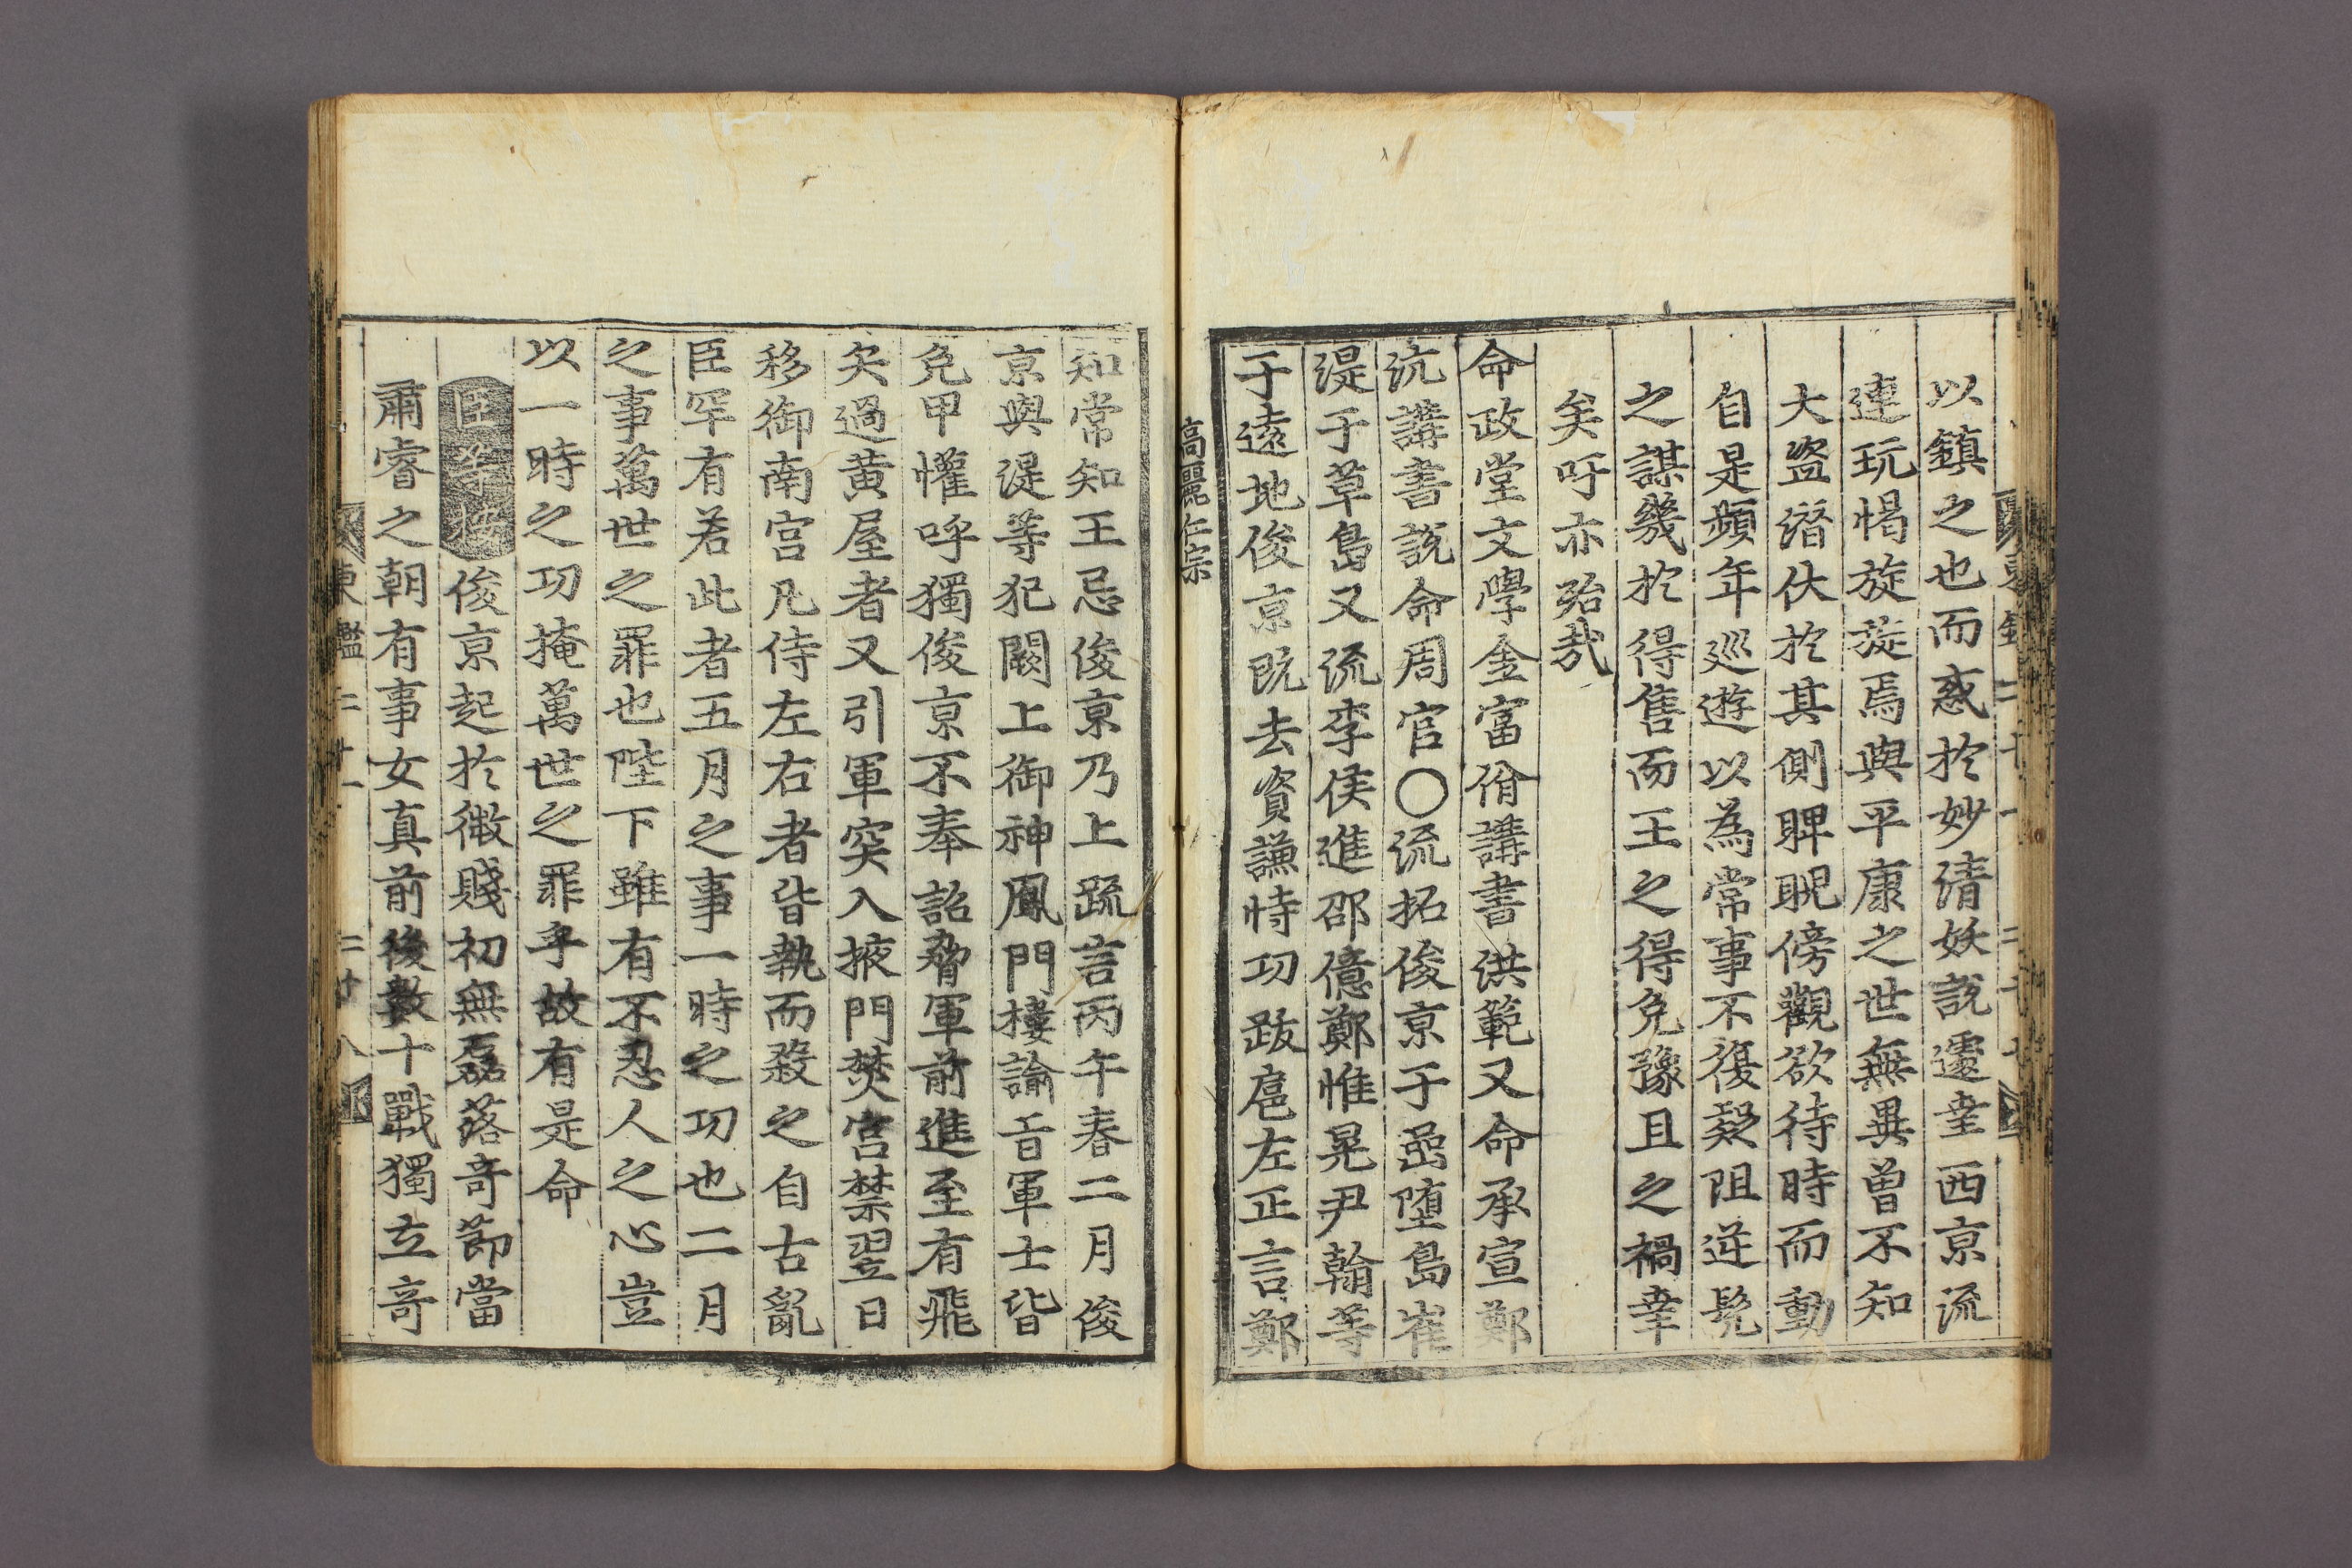 以鎮之也而惑於妙清妖說遽幸西京流
連玩愒旋旋焉與平康之世無異曾不知
大盜潛伏於其側睥睨傍觀欲待時而動
自是頻年廵遊以為常事不復疑阻逆髡
之謀幾於得售而王之得免豫且之禍幸
矣吁亦殆哉
命政堂文學金富佾講書洪範又命承宣鄭
沆講書說命周官〇流拓俊京于嵒墮島崔
湜于草島又流李侯進邵億鄭惟晃尹翰等
于遠地俊京旣去資謙恃功跋扈左正言鄭
高麗仁宗
知常知王忌俊京乃上疏言丙午春二月俊
京與湜等犯闕上御神鳳門樓諭旨軍士皆
免甲懽呼獨俊京不奉詔脅軍前進至有飛
矢過黃屋者又引軍突入掖門焚宮禁翌日
移御南宮凡侍左右者皆執而殺之自古亂
臣罕有若此者五月之事一時之功也二月
之事萬世之罪也陛下雖有不忍人之心豈
以一時之功掩萬世之罪乎故有是命
臣等按俊京起於微賤初無磊落奇節當
肅睿之朝有事女真前後數十戰獨立奇
東鑑二十一 二十八